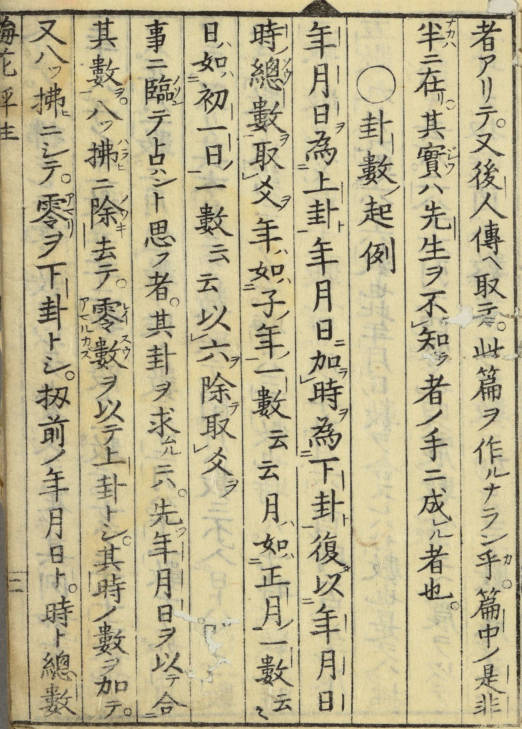 者アリテ。又後人傳ヘ取テ。此篇ヲ作ルナラン乎。篇中ノ是非
半ニ在リ。其實ハ先生ヲ不知ラ者ノ手ニ成ル者也。
〇卦數起例
年月日為上卦年月日加時為下卦復以年月日
時總數取爻年如子年一數云云月如正月一數云〻
日如初一日一數云云以六除取爻
事ニ臨テ占ハント思フ者。其卦ヲ求ムルニハ。先年月日ヲ以テ合
其數ヲ。八ッ拂ニ除去テ。零數ヲ以テ上卦トシ。其時ノ數ヲ加テ。
又八ッ拂ニシテ。零ヲ下卦トシ。扨前ノ年月日ト。時ト總數
梅花 評註